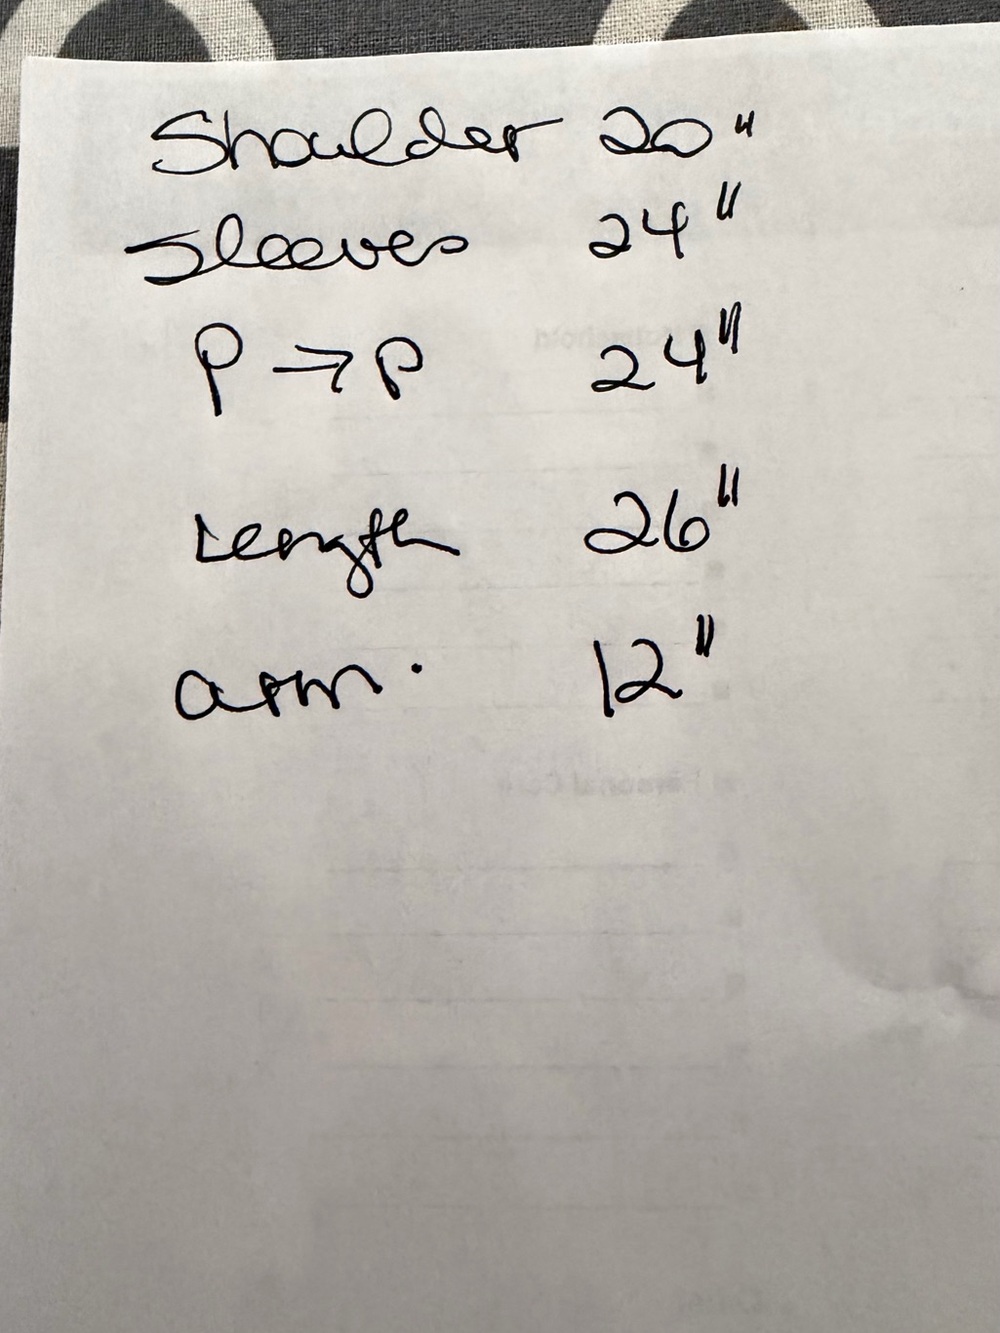 Shoulder 20"
Sleeves 24"
P → P 24"
Length 26"
arm. 12"